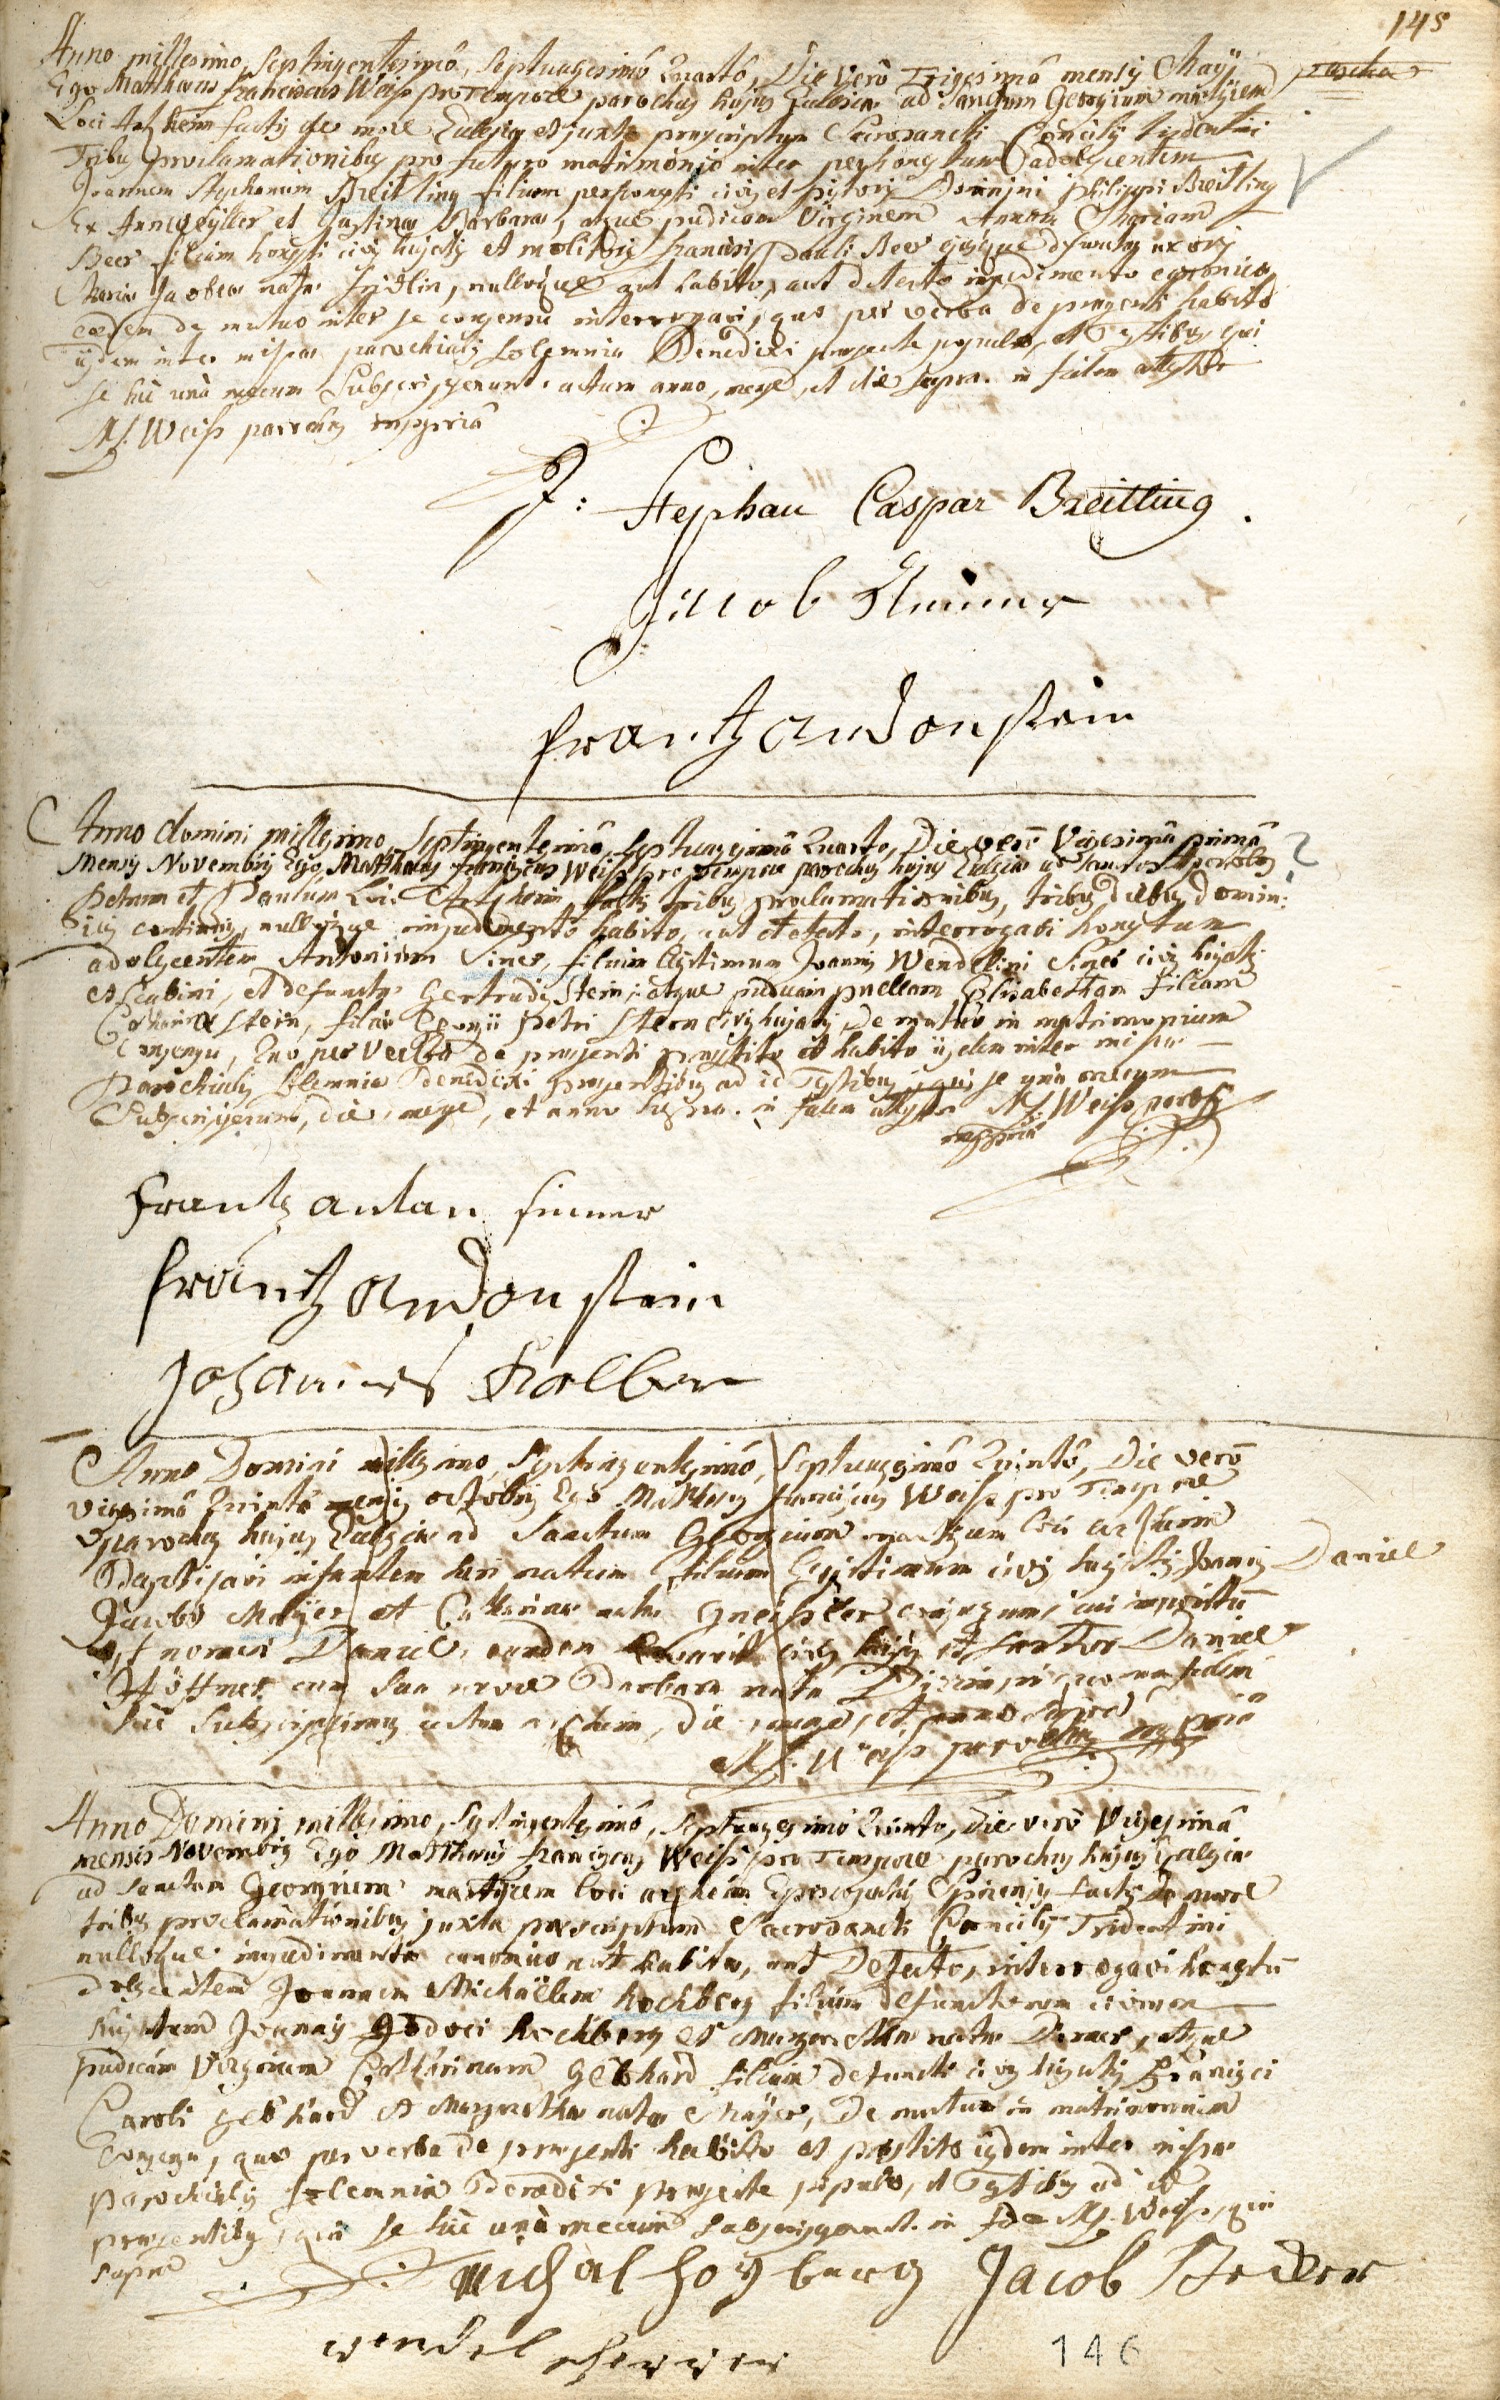 145
Anno millesimo, Septingentesimô, Septuagesimô Quartô, Die verô Trigesimâ mensis Maÿ
Ego Matthaeus Franciscus Weiss pro Tempore parochus hujus Ecclesiae ad Sanctum Georgium martyrem
Loci factis de more Ecclesiae et juxta praescriptum Sacrosancti Concilij tridentini
Tribus proclamationibus pro futuro matrimonio inter perhonestum adolescentem
Joannem Stephanum Breitling filium perhonesti civis et Domini philippi Breitling
Ex Annweÿller et Barbarae, atque pudicam Virginem Annam Mariam
Beer filiam honesti civis hujatis et molitoris Francisci Pauli Beer ejusque defunctae uxoris
Mariae Jacobeae natae nulloque aut habito, aut detento impedimento canonico
eosdem de mutuo inter se consensu interrogavi, quo per verba de praesenti habito
ijsdem inter missae parochialis solemnia Benedixi praesente populo, et Testibus qui
se hic unà mecum Subscripserunt. actum anno, mense, et die supra. in fidem attestor
M.F. Weiss parochus mppriâ
J: Stephan Caspar Breitling.
Jacob
frantz andon stein
Anno domini millesimo, Septingentesimô, Septuagesimô Quarto, Die verô Vigesimâ primâ ?
Mensis Novembris Ego Matthaeus Franciscus Weiss pro tempore parochus hujus Ecclesiae ad Sanctos Apostolos
Petrum et Paulum Loci factis tribus proclamationibus, tribus diebus Domini-
cis continuis, nulloque impedimento habito, aut detento, interrogavi honestum
adolescentem Antonium Siner, filium legitimum Joannis Wendelini Siner civis hujatis
et Scabini, et defunctae Gertrudis Stein; atque pudicam puellam Elisabetham filiam
Stein, Georgii Petri Stern civis hujatis, de mutuo in matrimonium
Consensu, Quo per Verba de praesenti praestito et habito ijsdem inter missae
Parochialis solemnia Benedixi praesentibus ad id Testibus, qui se unà mecum
Subscripserunt, Die, mense, et anno supra. in fidem attestor M.F. Weiss paroch
mppriâ
frantz antan sinner
frantz andon stein
Johannes
Anno Domini millesimo, Septingentesimô, Septuagesimô Quintô, Die verô
vigesimâ Quintâ mensis octobris Ego Mattheus Franciscus Weiss pro Tempore
parochus hujus Ecclesiae ad Sanctum Georgium martyrem loci arzheim
Baptisavi infantem heri natum filium legitimum civis hujatis Joannis Daniel
Jacobi Maÿer et Catharinae natae Gneissler conjugum, cui impositum
est nomen Daniel, eundem levavit civis hujus et sartor Daniel
Höffner cum sua uxore Barbara nata quorum fidem
hic Subscripsimus actum arzheim, die, mense, et anno supra
M.F. Weiss parochus mppriâ
Anno Domini millesimo, Septingentesimô, Septuagesimô Quinto, die verô Vigesimâ
mensis Novembris Ego Matthaeus Franciscus Weiss pro Tempore parochus hujus Ecclesiae
ad Sanctum Georgium martyrem loci arzheim Episcopatus Spirensis factis de more
tribus proclamationibus juxta praescriptum Sacrosancti Concilij Tridentini
nulloque impedimento canonico aut habito, aut Detento, interrogavi honestum
adolescentem Joannem Michäelem Hochberg filium defunctorum civium
hujatum Joannis Jodoci Hochberg et Margarethae natae atque
pudicam Virginem Catharinam Gebhard filiam defuncti civis hujatis Francisci
Caroli Gebhard et Margarethae natae Maÿer, de mutuo in matrimonium
Consensu, quo per verba de praesenti habito et praestito ijsdem inter missae
parochialis solemnia Benedixi praesente populo, et Testibus ad id
praesentibus, qui se hic unà mecum subscripserunt. in fidem M.F. Weiss, qui
supra
michal hochberg Jacob
wendel scherrer
146